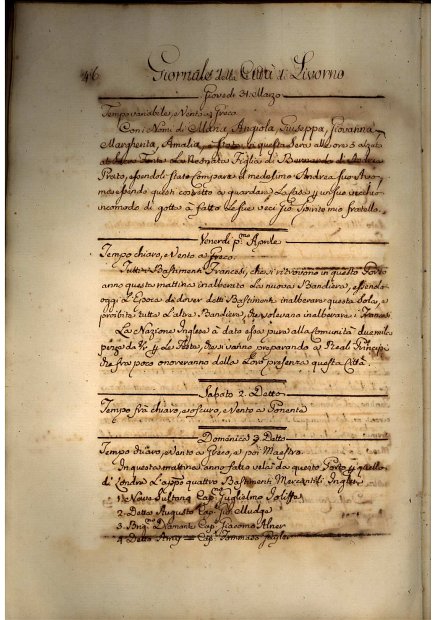 46 Giornale della Città di Livorno
Giovedi 31. Marzo
Tempo variabile, e Vento a Greco.
Con i Nomi di Maria, Angiola, Giuseppa, Giovanna,
Margherita, Amalia, è stata in questa Sera alle ore 3
al Sacro Fonte La Neonata Figlia di Bernardo di Andrea
Prato, essendoli stato Compare il medesimo Andrea suo Avo
incomodo di gotta à fatto le sue veci Gio. Spirito mio fratello.
Venerdi p.mo Aprile
Tempo chiaro, e Vento a Greco.
Tutti i Bastimenti Francesi, che si ritrovono in questo Porto
anno questa mattina inalberato La nuova Bandiera, essendo
oggi L'Epoca di dover detti Bastimenti inalberare questa sola, e
proibita tutte L'altre Bandiere, che volevano inalberare i
La Nazione Inglese à dato essa pure alla Comunità due mila
pezze da 8/r p. le Feste, che si vanno preparando a Reali Principi
che fra poco onoreranno della Loro presenza questa Città.
Sabato 2. Detto
Tempo frà chiaro, e oscuro, e Vento a Ponente
Domenica 3. Detto
Tempo chiaro, e Vento a Greco, e poi Maestro.
In questa mattina anno fatto vela da questo Porto p. quello
di Londra L'appo quattro Bastimenti Mercantili Inglesi
1. Nave Sultana Cap. Guglielmo Joliffe
2. Detta Augusto Cap. Gio. Mudge
3. Brig.no Diamant Cap. Giacomo Alner
4. Detto Amy Cap. Tommaso